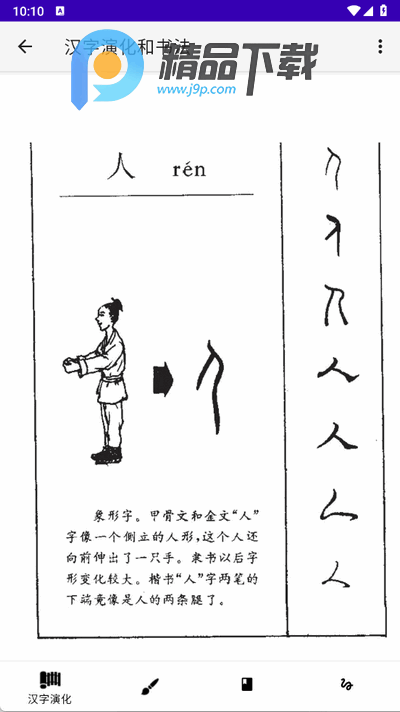 10:10
汉字演化和书法
精品下载
www.j9p.com
人 rén
象形字。甲骨文和金文“人”
字像一个侧立的人形，这个人还
向前伸出了一只手。隶书以后字
形变化较大。楷书“人”字两笔的
下端竟像是人的两条腿了。
人
人
人
人
人
人
人
汉字演化